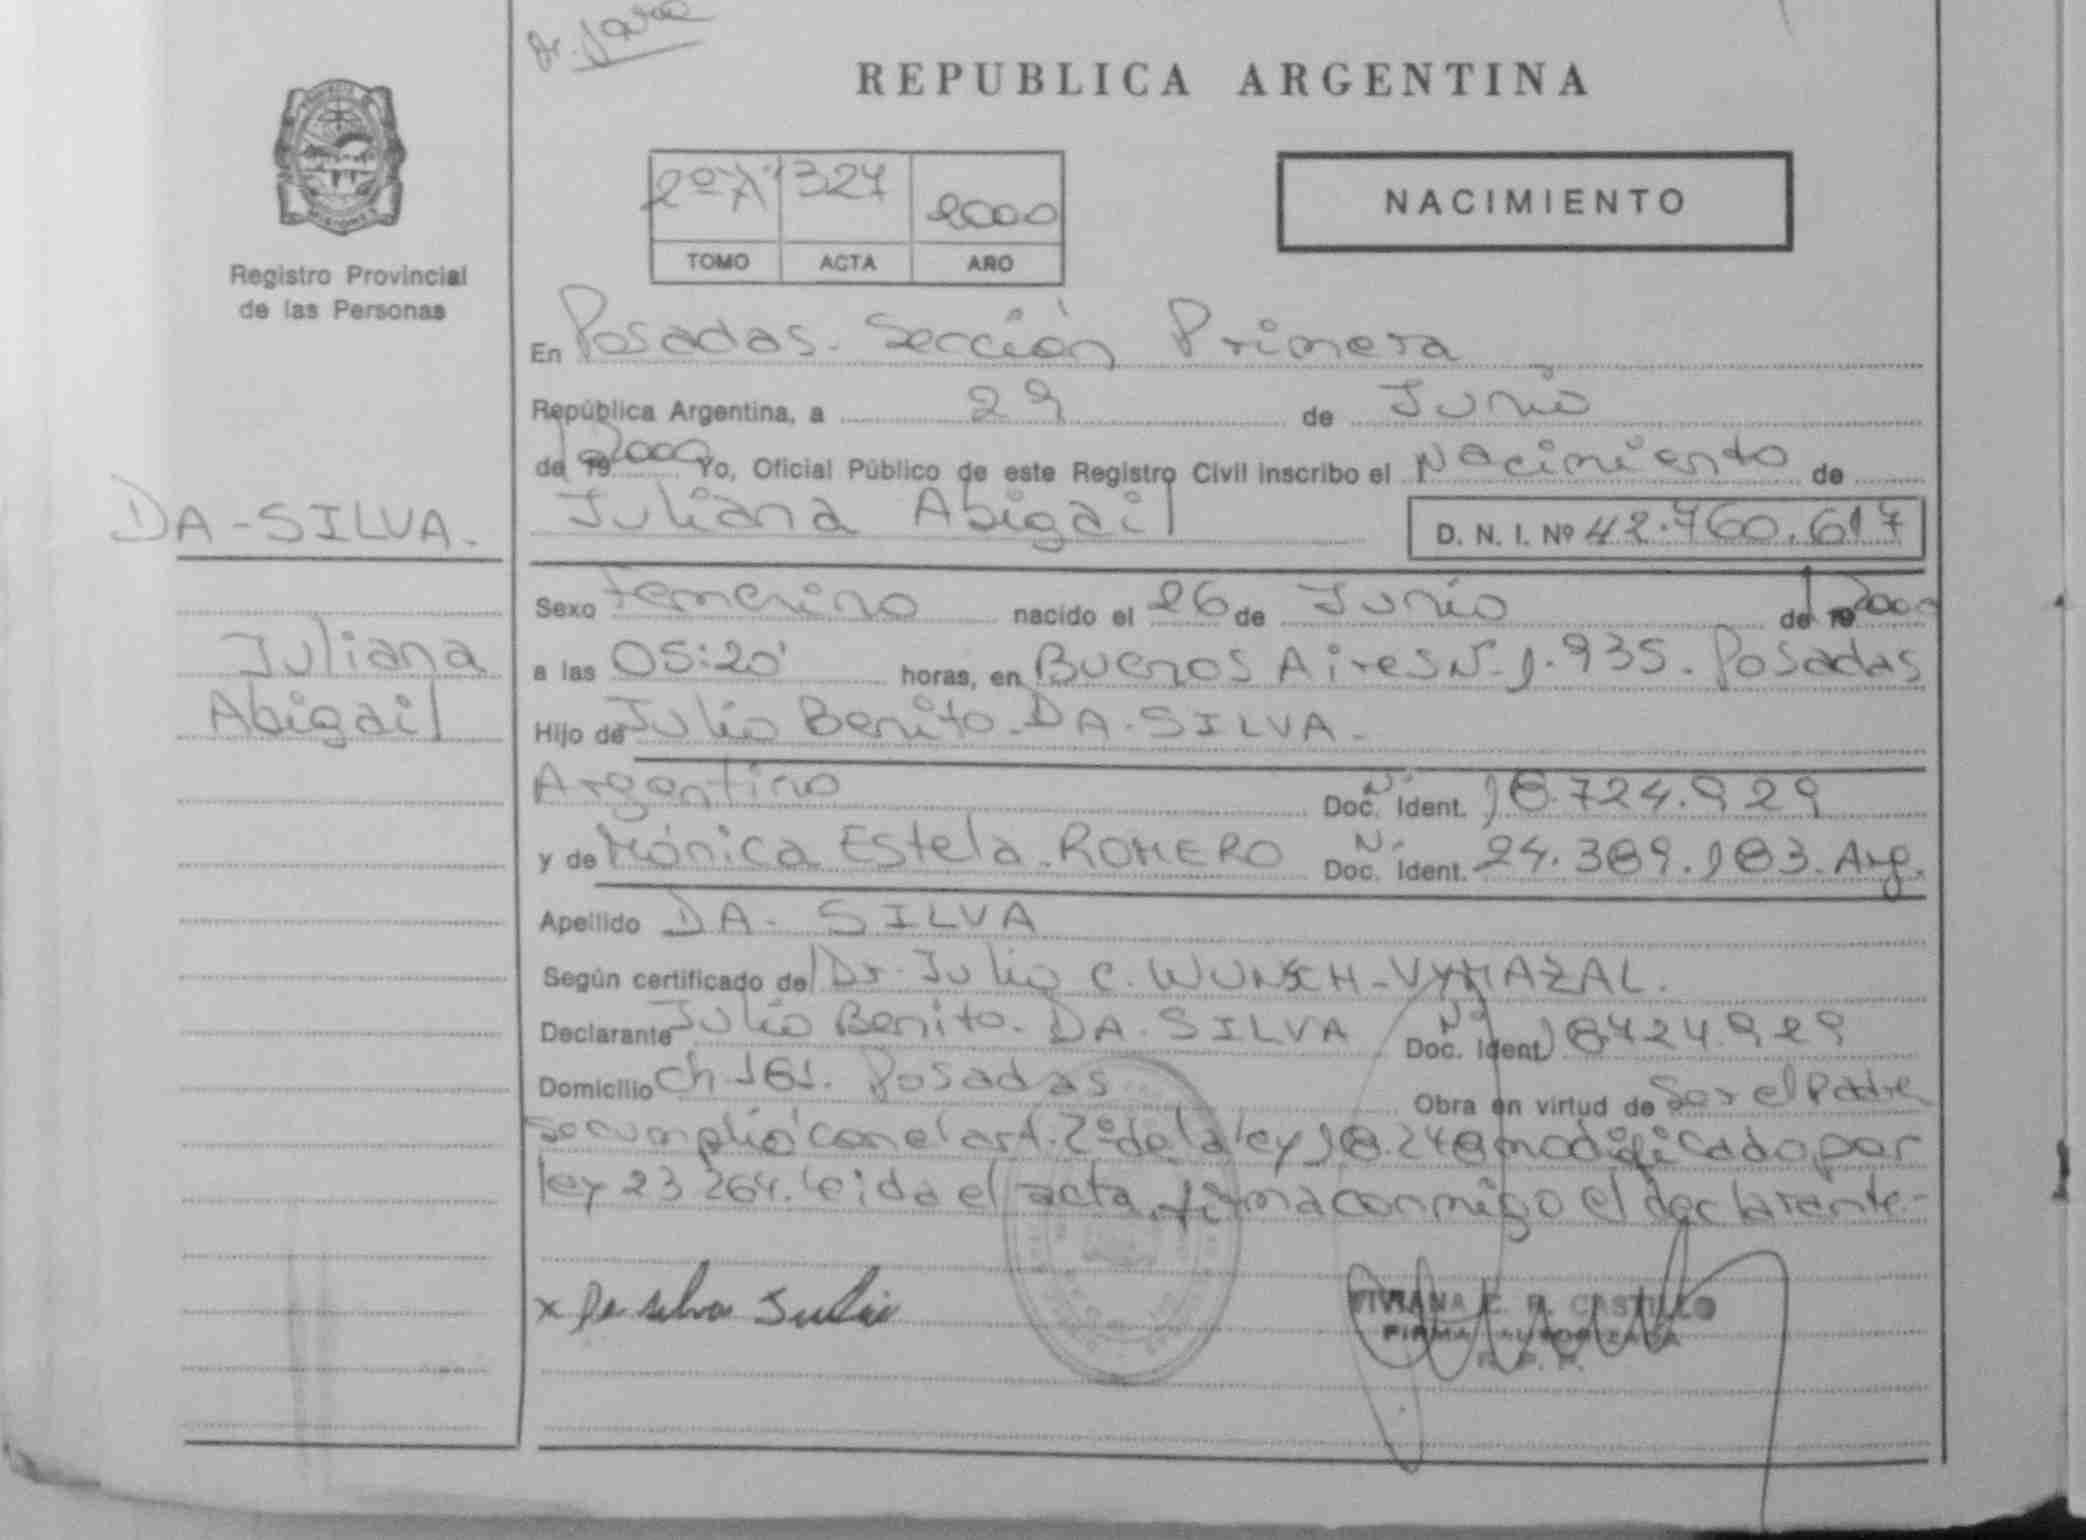 REPUBLICA ARGENTINA
2º "A" 327 2000
TOMO ACTA AÑO
NACIMIENTO
Registro Provincial
de las Personas
En Posadas. Sección Primera
República Argentina, a 29 de Junio
de 19 2000 Yo, Oficial Público de este Registro Civil inscribo el Nacimiento de
DA-SILVA.
Juliana Abigail
D. N. I. Nº 42.760.617
Sexo Femenino nacido el 26 de Junio de 19 2000
Juliana
Abigail
a las 05:20' horas, en Buenos Aires Nº 1.935. Posadas
Hijo de Julio Benito DA-SILVA.
Argentino Doc. Ident. Nº 18.724.929
y de Mónica Estela ROMERO Doc. Ident. Nº 24.389.183. Arg.
Apellido DA-SILVA
Según certificado de Dr. Julio C. WUNSCH-VYMAZAL.
Declarante Julio Benito DA-SILVA Doc. Ident. Nº 18724.929
Domicilio Ch 181. Posadas Obra en virtud de Ser el Padre
Se cumplió con el art. 2º de la ley 18.248 modificado por
ley 23.264. Leida el acta, firma conmigo el declarante-
x Da silva Julio
VIVIANA E. R. CASTILLO
FIRMA AUTORIZADA
R. P. P.